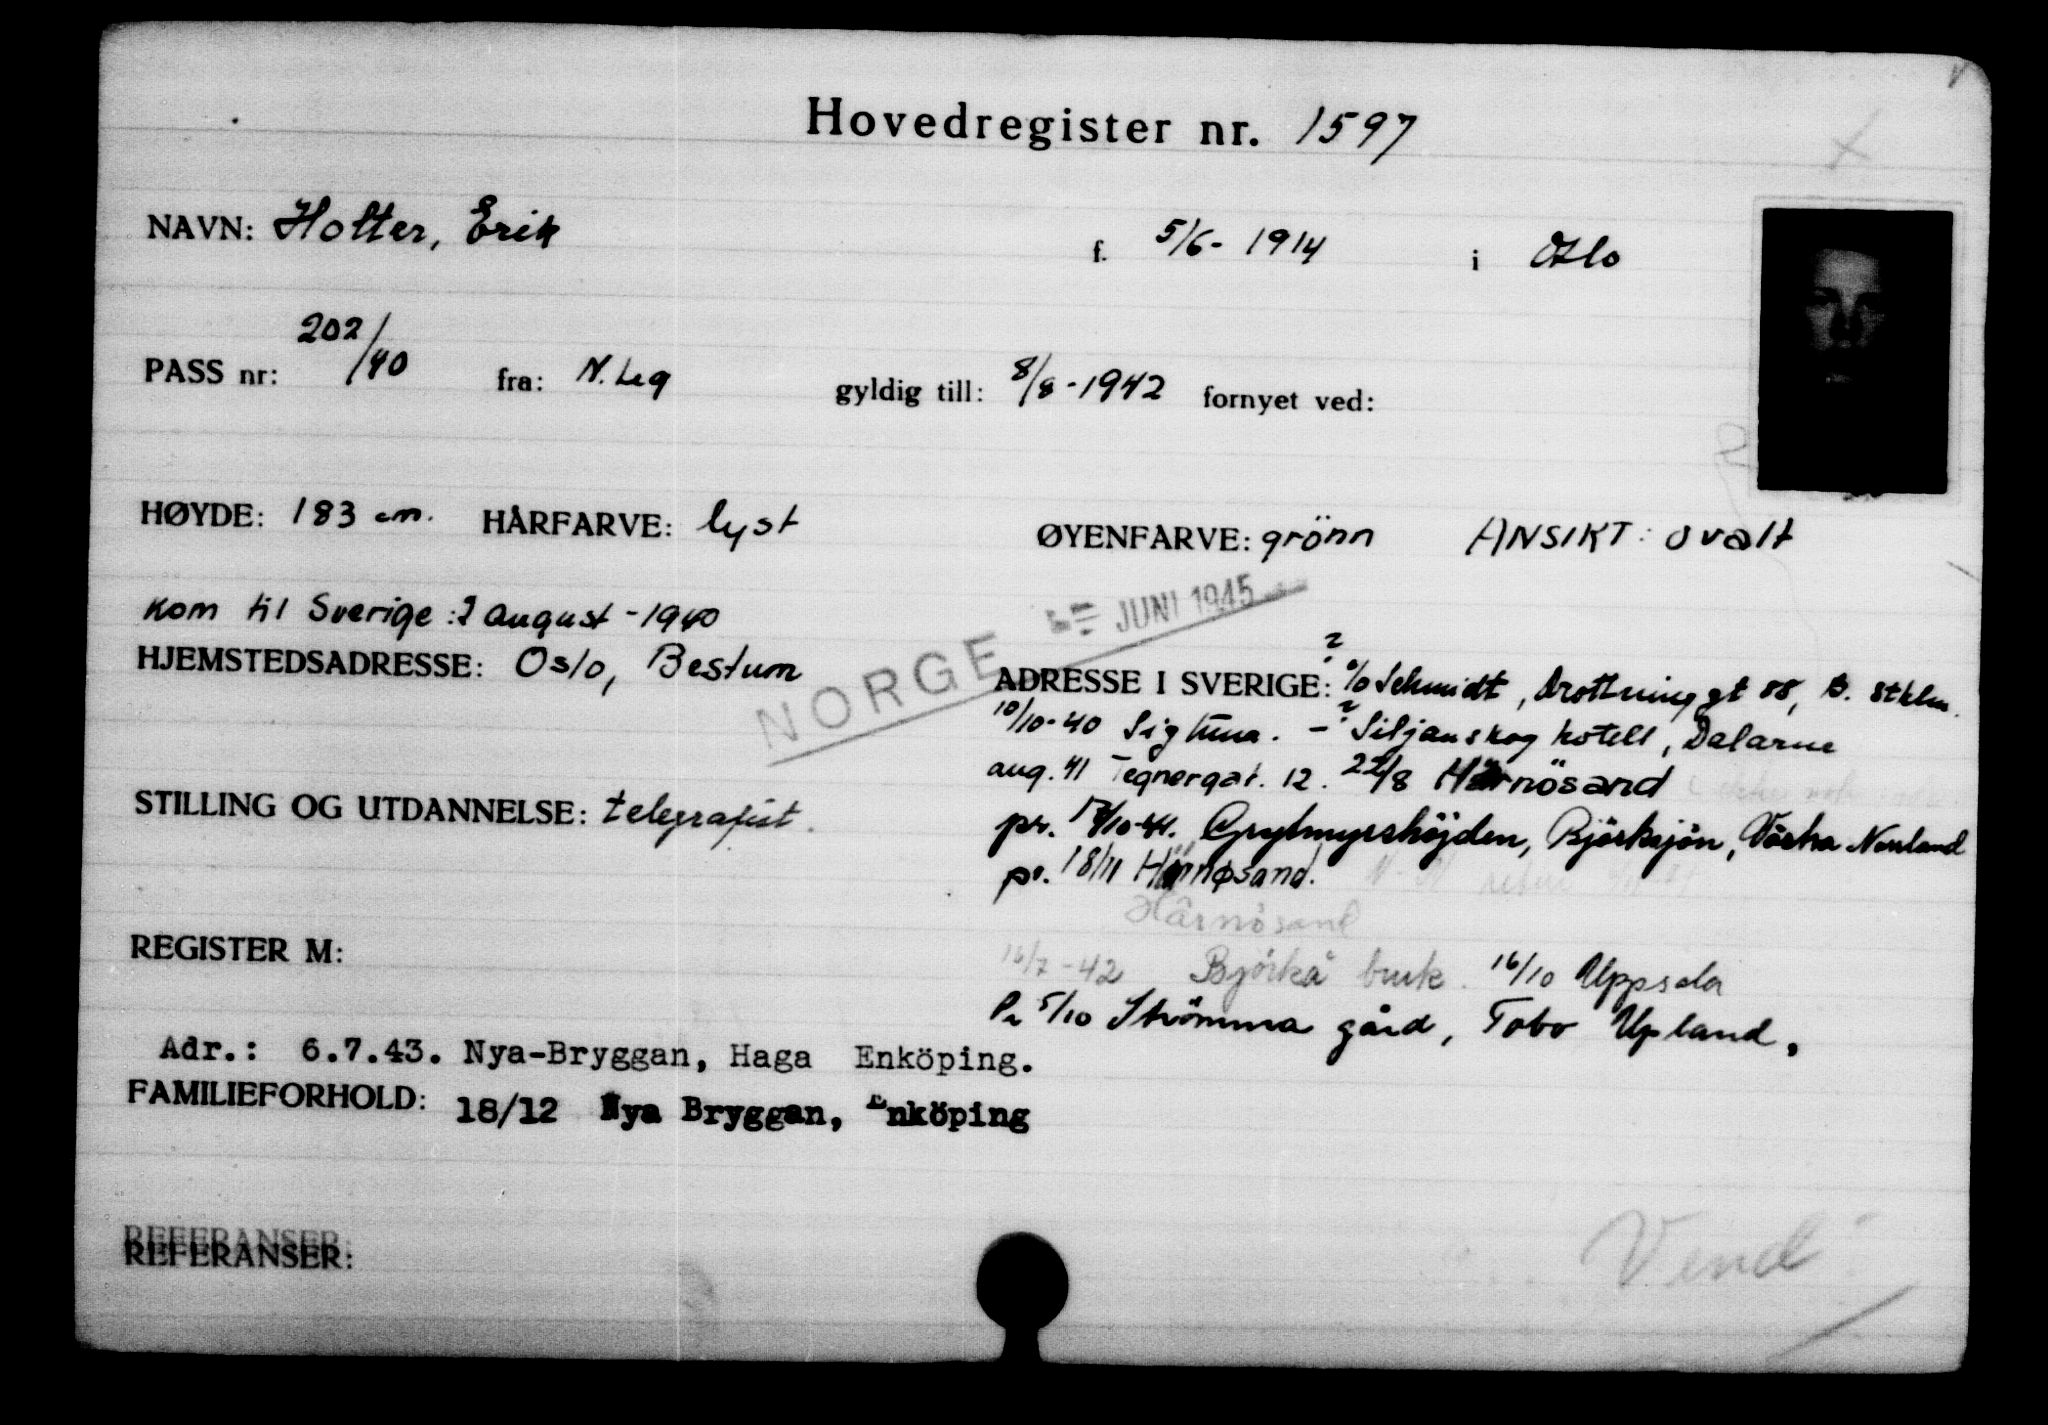 Hovedregister nr. 1597
NAVN: Holter, Erik f. 5/6- 1914 i Oslo
PASS nr: 202/40 fra: N. Leg gyldig till: 8/8-1942 fornyet ved:
HØYDE: 183 cm. HÅRFARVE: lyst ØYENFARVE: grönn ANSIKT: ovalt
Kom til Sverige: 2 august - 1940
JUNI 1945
NORGE
HJEMSTEDSADRESSE: Oslo, Bestum
ADRESSE I SVERIGE: ? c/o Schmidt, Drottninggt 88, B. Sthlm.
10/10-40 Sigtuna. - ? Siljanskog hotell, Dalarne
aug. 41 Tegnergat. 12. 22/8 Härnösand
STILLING OG UTDANNELSE: telegrafist.
pr. 17/10-41. Grytmyrshöjden, Björksjön, Västra Norrland
pr. 18/11 Härnøsand.
Härnösand
REGISTER M:
16/7-42 Björkå bruk. 16/10 Uppsala
Pr 5/10 Strömma gård, Tobo Upland,
Adr.: 6.7.43. Nya-Bryggan, Haga Enköping.
FAMILIEFORHOLD: 18/12 Nya Bryggan, Enköping
REFERANSER:
REFERANSER:
Vend